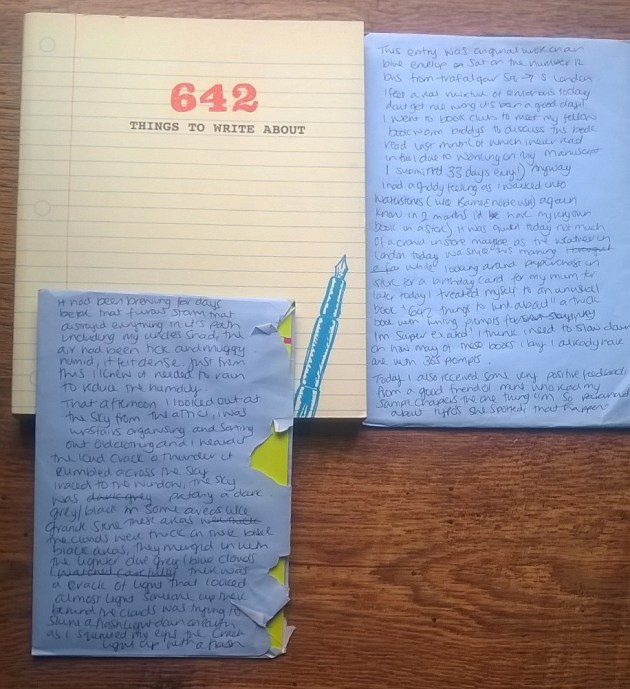 642
THINGS TO WRITE ABOUT
This entry was original work on an
blue envelop on Sat on the number 12
bus from trafalgar Sq → S London
I feel a real mixture of today
dont get me wrong its been a good day!
I went to book clubs to meet my fellow
book worm buddys to discuss the
read last month of which never had
in full due to working on my manuscript
I submit 33 days Anyway
I had a giddy feeling as I walked into
Waterstones (like Barnes node uk) again
know in 2 months i'd be have my very own
book in a store) It was quiet today not much
of a crowd in store maybe as the weather in
London today was this morning
a far while looking around paperchase in
store for a birthday card for my mum for
later today I treated myself to an unusual
book '642 things to write about' a thick
book with writing prompts for
I'm Super exated I think I need to slow down
on how many of these books I buy I already have
one with 365 prompts.
Today I also received some very positive feedback
from a good friend of mine who read my
sample chapters the one thing I'm so paranoid
about typos she spotted, that happens
It had been brewing for days
before that furious storm that
distroyd everything in it's path
including my uncles shed, the
air had been tick and muggy
humid, it felt dense just from
this I knew it needed to rain
to reduce the humidity
That afternoon I looked out at
the sky from the attic, I was
upstairs organising and sorting
out old clothing and I heard
the loud crack o thunder it
rumbled across the sky
I raced to the window, the sky
was dark grey patchy a dark
grey/black in some areas like
Granit Stone these areas
the clouds were thick in these
black areas, they merged in with
the lighter dar grey/blue clouds
I watched carefully there was
a crack of light that looked
almost light someone up there
behind the clouds was trying to
shine a flash light down on earth
as I squinted my eyes the crack
light up with a flash